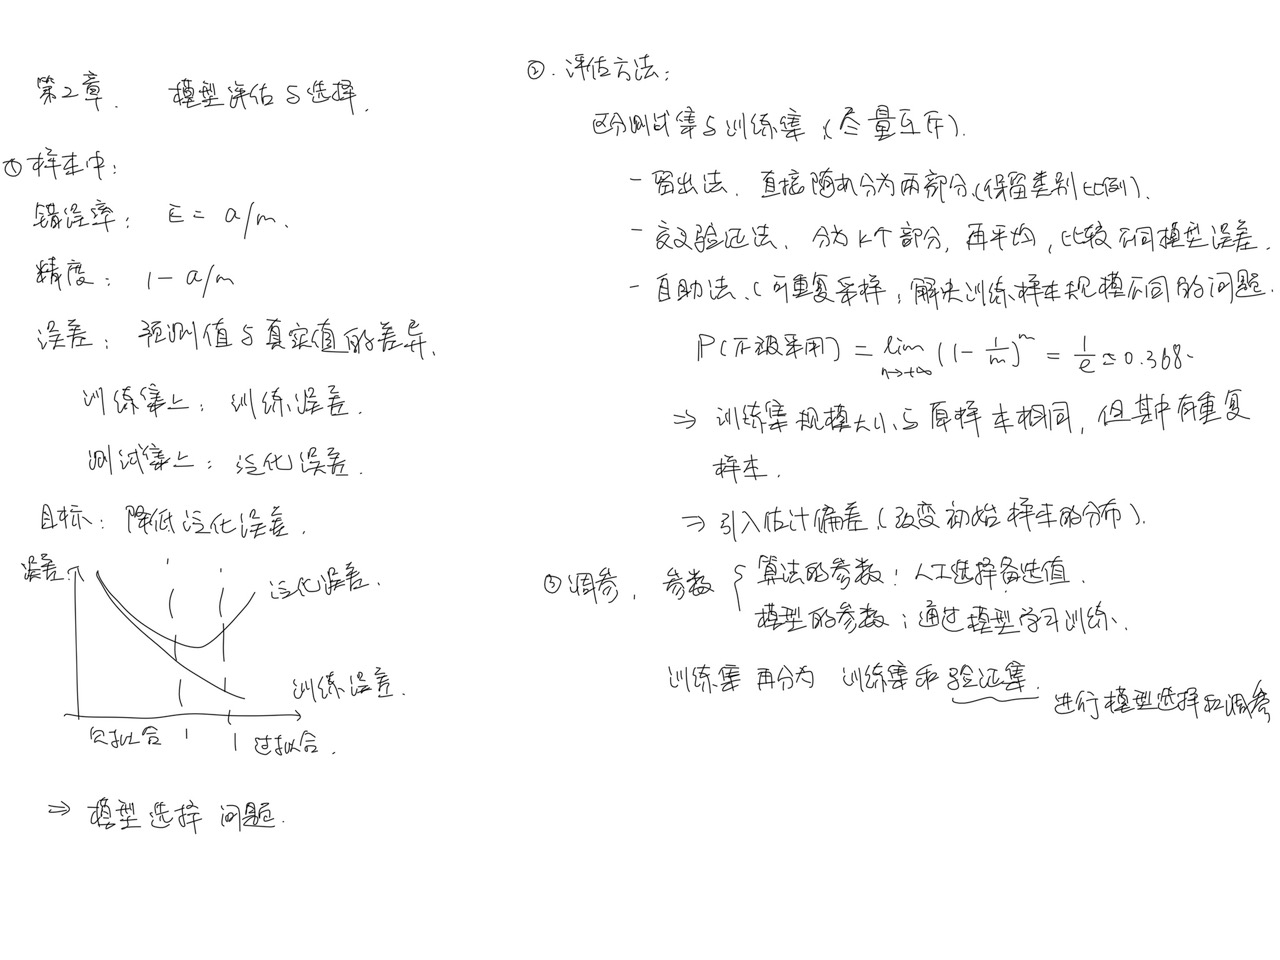 第2章. 模型评估与选择.
① 样本中:
错误率: E = a/m.
精度: 1 - a/m
误差: 预测值与真实值的差异.
训练集上: 训练误差.
测试集上: 泛化误差.
目标: 降低泛化误差.
误差
泛化误差.
训练误差.
欠拟合
过拟合.
⇒ 模型选择问题.
②. 评估方法:
区分测试集与训练集 (尽量互斥).
- 留出法. 直接随机分为两部分 (保留类别比例).
- 交叉验证法. 分为 k个部分, 再平均, 比较不同模型误差.
- 自助法. (可重复采样, 解决训练样本规模不同的问题.
P(不被采用) = lim n→+∞ (1 - 1/m)^m = 1/e ≈ 0.368.
⇒ 训练集规模大小与原样本相同, 但其中有重复
样本.
⇒ 引入估计偏差 (改变初始样本的分布).
③ 调参. 参数 { 算法的参数: 人工选择备选值.
模型的参数: 通过模型学习训练.
训练集再分为 训练集和验证集.
进行模型选择和调参